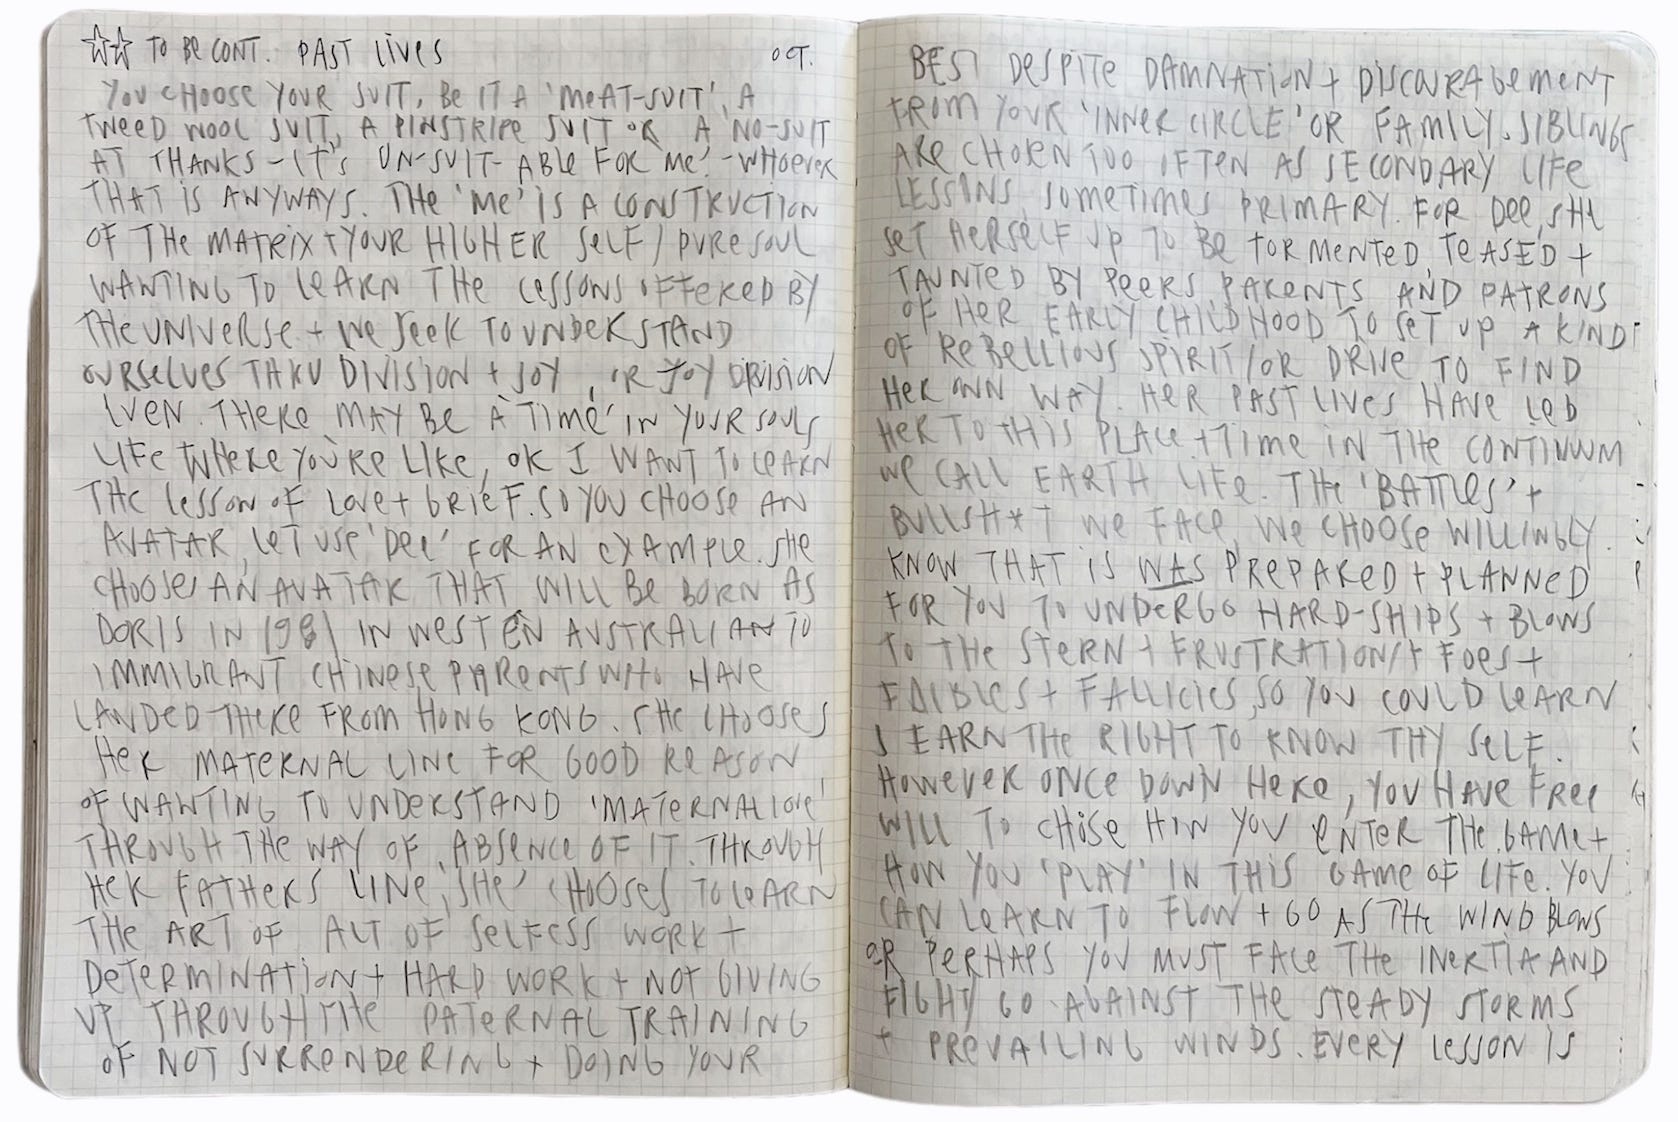 ☆☆ TO BE CONT. PAST LIVES OCT.
YOU CHOOSE YOUR SUIT, BE IT A 'MEAT-SUIT', A
TWEED WOOL SUIT, A PINSTRIPE SUIT OR A 'NO-SUIT
AT THANKS - IT'S UN-SUIT-ABLE FOR ME' - WHOEVER
THAT IS ANYWAYS. THE 'ME' IS A CONSTRUCTION
OF THE MATRIX + YOUR HIGHER SELF / PURE SOUL
WANTING TO LEARN THE LESSONS OFFERED BY
THE UNIVERSE + WE SEEK TO UNDERSTAND
OURSELVES THRU DIVISION + JOY, OR JOY DIVISION
EVEN. THERE MAY BE A 'TIME' IN YOUR SOULS
LIFE WHERE YOU'RE LIKE, OK I WANT TO LEARN
THE LESSON OF LOVE + GRIEF. SO YOU CHOOSE AN
AVATAR, LET USE 'DEE' FOR AN EXAMPLE. SHE
CHOOSES AN AVATAR THAT WILL BE BORN AS
DORIS IN 1981 IN WESTEN AUSTRALIAN TO
IMMIGRANT CHINESE PARENTS WHO HAVE
LANDED THERE FROM HONG KONG. SHE CHOOSES
HER MATERNAL LINE FOR GOOD REASON
OF WANTING TO UNDERSTAND 'MATERNAL LOVE'
THROUGH THE WAY OF ABSENCE OF IT. THROUGH
HER FATHERS LINE, 'SHE' CHOOSES TO LEARN
THE ART OF ALT OF SELFESS WORK +
DETERMINATION + HARD WORK + NOT GIVING
UP THROUGH THE PATERNAL TRAINING
OF NOT SURRENDERING + DOING YOUR
BEST DESPITE DAMNATION + DISCOURAGEMENT
FROM YOUR 'INNER CIRCLE' OR FAMILY. SIBLINGS
ARE CHOSEN TOO OFTEN AS SECONDARY LIFE
LESSONS, SOMETIMES PRIMARY. FOR DEE, SHE
SET HERSELF UP TO BE TORMENTED, TEASED +
TAUNTED BY PEERS PARENTS AND PATRONS
OF HER EARLY CHILDHOOD TO SET UP A KIND
OF REBELLIOUS SPIRIT / OR DRIVE TO FIND
HER OWN WAY. HER PAST LIVES HAVE LED
HER TO THIS PLACE + TIME IN THE CONTINUUM
WE CALL EARTH LIFE. THE 'BATTLES' +
BULLSH*T WE FACE, WE CHOOSE WILLINGLY.
KNOW THAT IS WAS PREPARED + PLANNED
FOR YOU TO UNDERGO HARD-SHIPS + BLOWS
TO THE STERN + FRUSTRATION/+ FOES +
FOIBLES + FALLICIES, SO YOU COULD LEARN
& EARN THE RIGHT TO KNOW THY SELF.
HOWEVER ONCE DOWN HERE, YOU HAVE FREE
WILL TO CHOSE HOW YOU ENTER THE GAME +
HOW YOU 'PLAY' IN THIS GAME OF LIFE. YOU
CAN LEARN TO FLOW + GO AS THE WIND BLOWS
OR PERHAPS YOU MUST FACE THE INERTIA AND
FIGHT / GO AGAINST THE STEADY STORMS
+ PREVAILING WINDS. EVERY LESSON IS